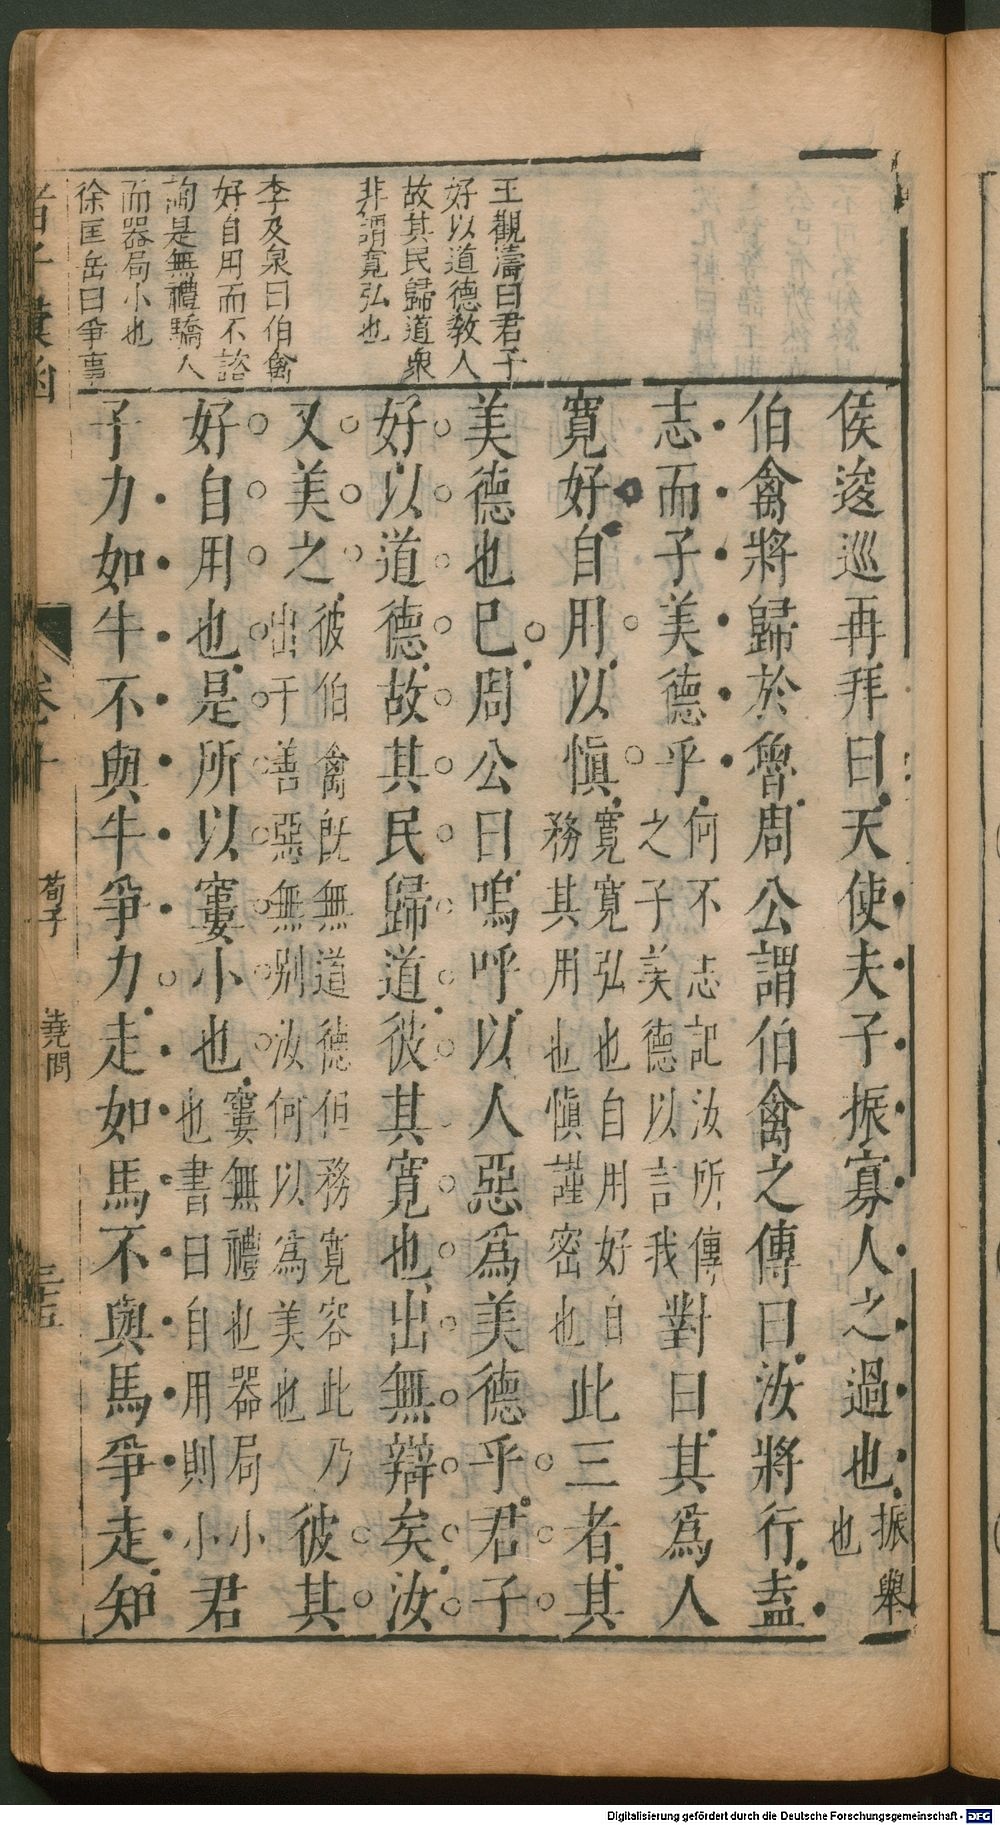 王觀濤曰君子
好以道德教人
故其民歸道衆
非謂寬弘也
李及泉曰伯禽
好自用而不諮
詢是無禮驕人
而器局小也
徐匡岳曰爭事
侯逡巡再拜曰天使夫子振寡人之過也振舉也
伯禽將歸於魯周公謂伯禽之傳曰汝將行盍
志而子美德乎何不志記汝所傳之子美德以言我對曰其為人
寬好自用以慎寬寬弘也自用好自務其用也慎謹密也此三者其
美德也已周公曰嗚呼以人惡為美德乎君子
好以道德故其民歸道彼其寬也出無辯矣汝
又美之彼伯禽既無道德但務寬容此乃出于善惡無別汝何以為美也彼其
好自用也是所以窶小也窶無禮也器局小也書曰自用則小君
子力如牛不與牛爭力走如馬不與馬爭走知
卷十
荀子
堯問
三五
Digitalisierung gefördert durch die Deutsche Forschungsgemeinschaft - DFG